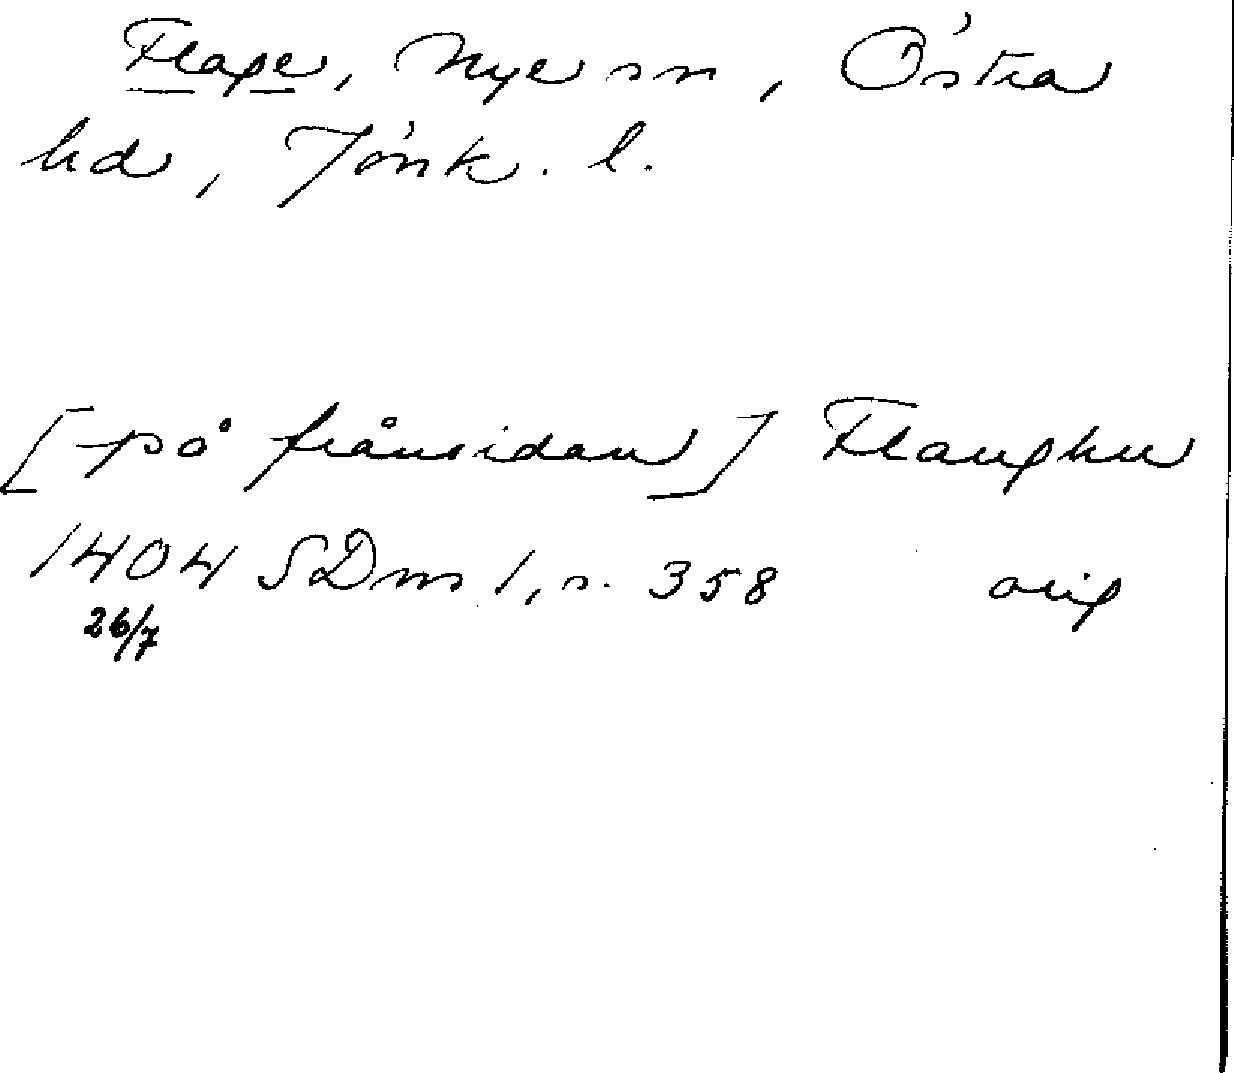 Flage, Nye sn, Östra
hd, Jönk. l.
[på frånsidan] Flaughu
1404 SDns 1, s. 358 orig
26/7